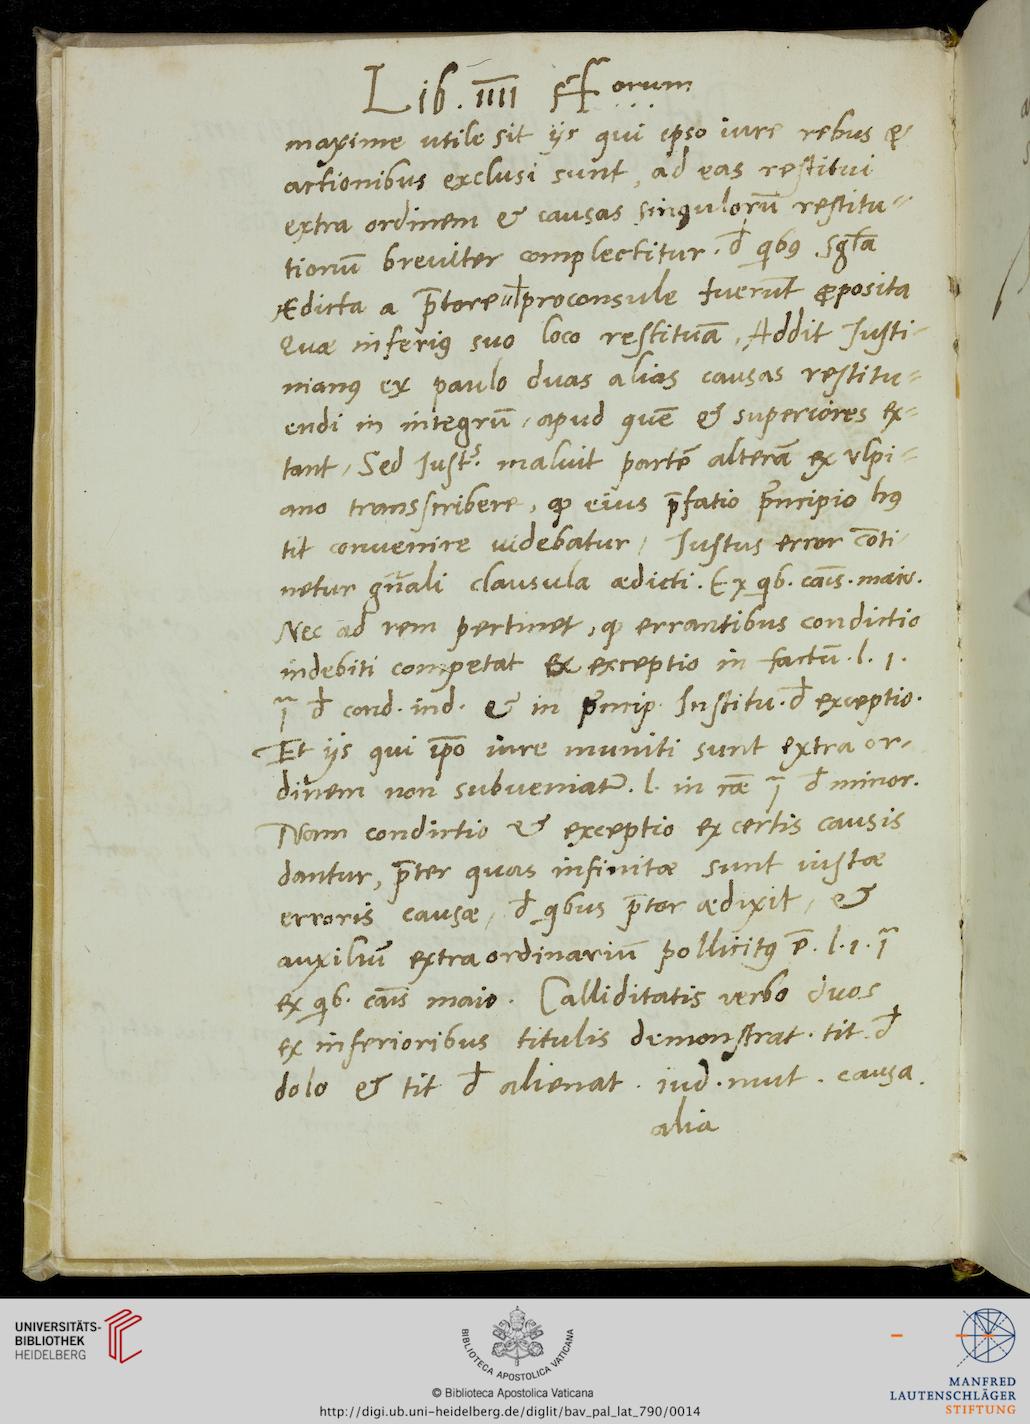 Lib. IIII ff orum
maxime utile sit iis qui ipso iure rebus &
actionibus exclusi sunt, ad eas restitui
extra ordinem & causas singulorū restitu-
tionū breviter complectitur. đ qibꝰ sgła
Ædicta a p̄tore uł proconsule fuerūt ꝓposita
Quæ inferiꝰ suo loco restituā. Addit Justi-
nianꝰ ex paulo duas alias causas restitu-
endi in integrū, apud quē & superiores ex-
tant, Sed Just.ˢ maluit partē alterā ex ulpi-
ano transscribere, qꝫ eius p̄fatio p̄ncipio hꝰ
tit convenire videbatur, Justus error cōti-
netur gn̄ali clausula ædicti. Ex qib. cāis. maio.
Nec ad rem pertinet, qꝫ errantibus condictio
indebiti competat & exceptio in factū. l. 1.
đ cond. ind. & in p̄ncip. Institu. đ exceptio.
Et iis qui ip̄o iure muniti sunt extra or-
dinem non subveniatᷣ. l. in cāe đ minor.
Nam condictio & exceptio ex certis causis
dantur, p̄ter quas infinitæ sunt iustæ
erroris causæ, đ qibus p̄tor ædixit, &
auxiliū extra ordinariū pollicitꝰ ē. l. 1.
ex qib. cāis maio. Calliditatis verbo duos
ex inferioribus titulis demonstrat. tit. đ
dolo & tit đ alienat. iud. mut. causa.
alia
UNIVERSITÄTS-
BIBLIOTHEK
HEIDELBERG
BIBLIOTECA APOSTOLICA VATICANA
© Biblioteca Apostolica Vaticana
http://digi.ub.uni-heidelberg.de/diglit/bav_pal_lat_790/0014
MANFRED
LAUTENSCHLÄGER
STIFTUNG